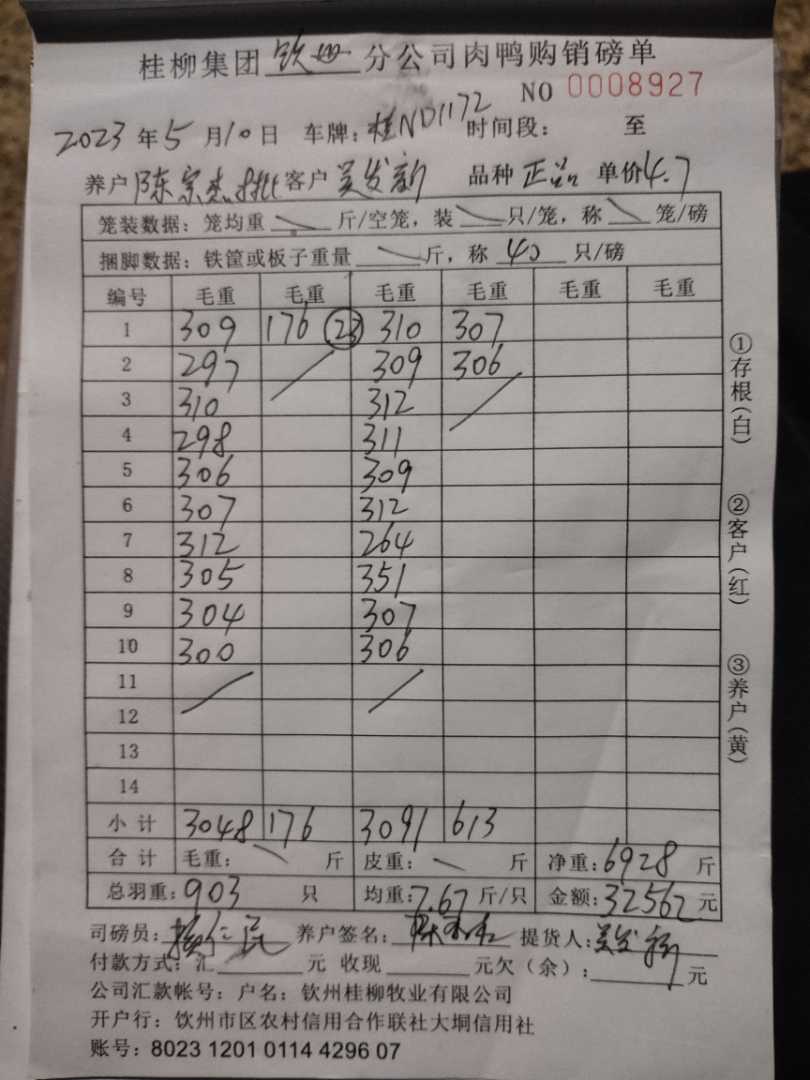 桂柳集团 钦州 分公司肉鸭购销磅单
NO 0008927
2023 年 5 月 10 日 车牌: 桂ND1172 时间段: 至
养户 陈宗杰 客户 吴发新 品种 正品 单价 4.7
笼装数据: 笼均重 斤/空笼, 装 只/笼, 称 笼/磅
捆脚数据: 铁筐或板子重量 斤, 称 40 只/磅
编号 毛重 毛重 毛重 毛重 毛重 毛重
1 309 176 23 310 307
2 297 309 306
3 310 312
4 298 311
5 306 309
6 307 312
7 312 264
8 305 351
9 304 307
10 300 306
11
12
13
14
小计 3048 176 3091 613
合计 毛重: 斤 皮重: 斤 净重: 6928 斤
总羽重: 903 只 均重: 7.67 斤/只 金额: 32562 元
司磅员: 养户签名: 提货人: 吴发新
付款方式: 汇 元 收现 元欠(余): 元
公司汇款帐号: 户名: 钦州桂柳牧业有限公司
开户行: 饮州市区农村信用合作联社大垌信用社
账号: 8023 1201 0114 4296 07
①存根(白)
②客户(红)
③养户(黄)